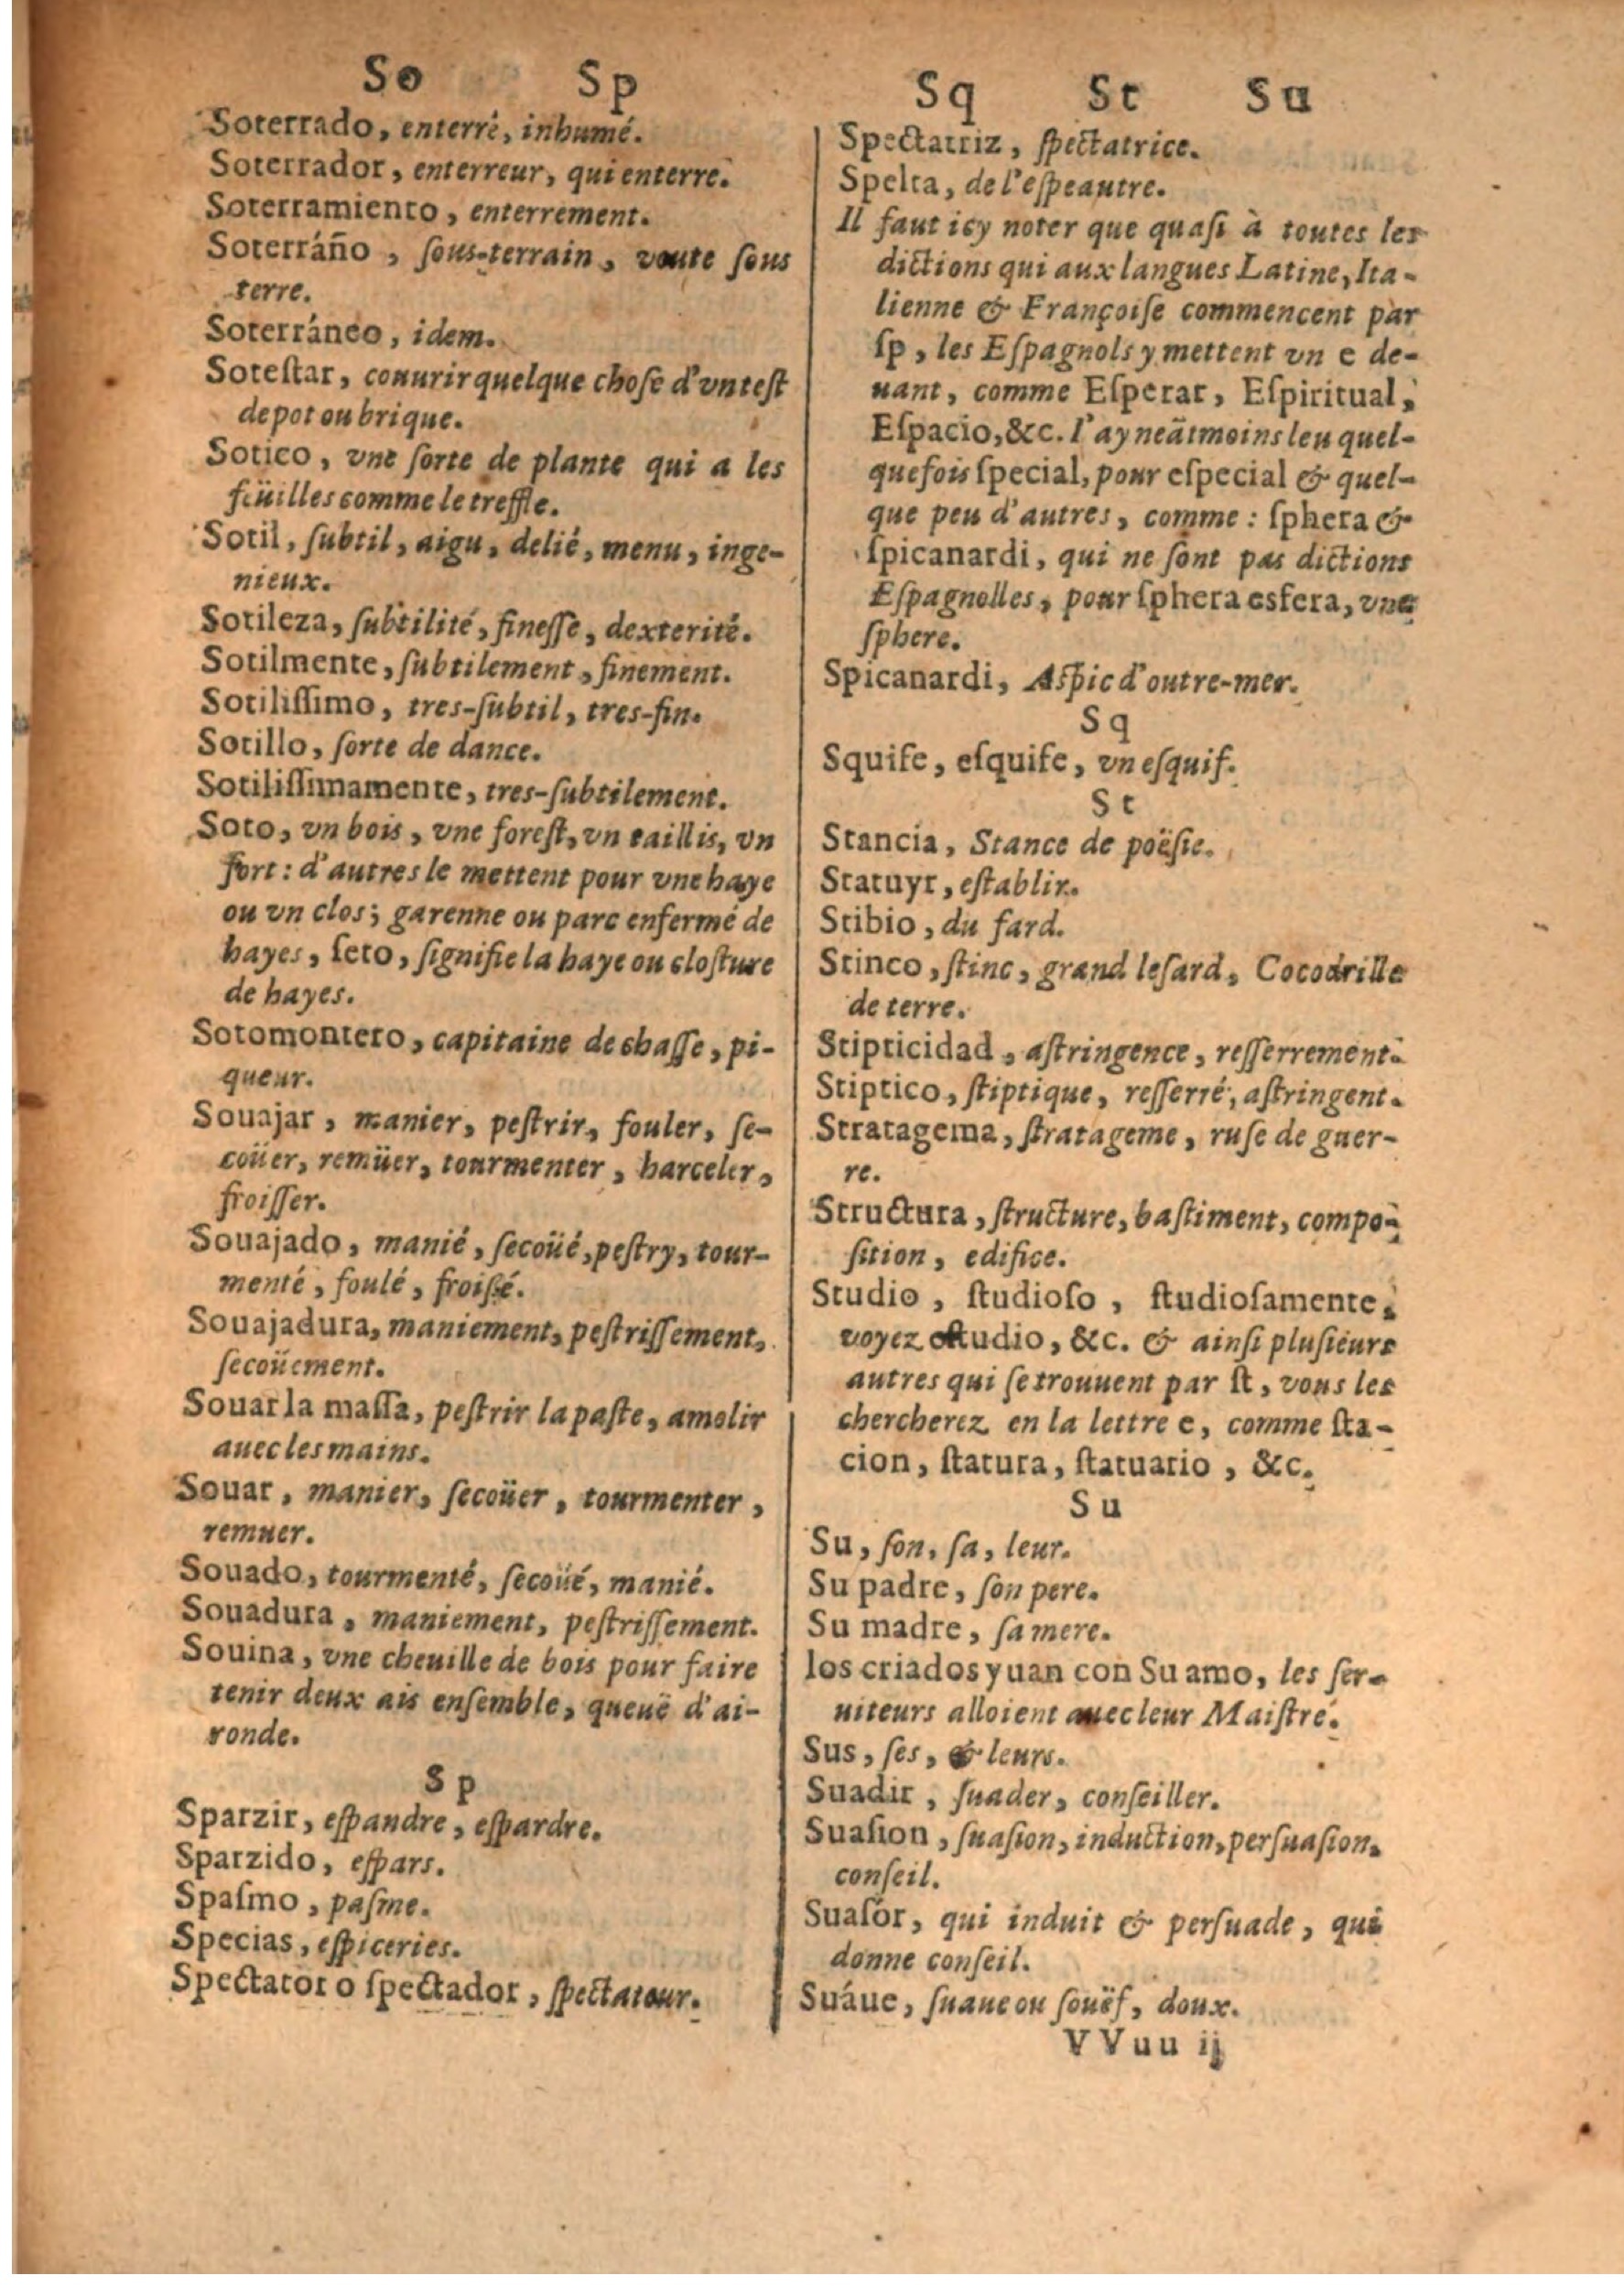 So Sp
Soterrado, enterré, inhumé.
Soterrador, enterreur, qui enterre.
Soterramiento, enterrement.
Soterráño, ſous-terrain, voute ſous
terre.
Soterráneo, idem.
Soteſtar, couurir quelque choſe d'vn teſt
de pot ou brique.
Sotico, vne ſorte de plante qui a les
feüilles comme le treffle.
Sotil, ſubtil, aigu, delié, menu, inge-
nieux.
Sotileza, ſubtilité, fineſſe, dexterité.
Sotilmente, ſubtilement, finement.
Sotiliſſimo, tres-ſubtil, tres-fin.
Sotillo, ſorte de dance.
Sotiliſſimamente, tres-ſubtilement.
Soto, vn bois, vne foreſt, vn taillis, vn
fort: d'autres le mettent pour vne haye
ou vn clos; garenne ou parc enfermé de
hayes, ſeto, ſignifie la haye ou cloſture
de hayes.
Sotomontero, capitaine de chaſſe, pi-
queur.
Souajar, manier, peſtrir, fouler, ſe-
coüer, remüer, tourmenter, harceler,
froiſſer.
Souajado, manié, ſecoüé, peſtry, tour-
menté, foulé, froiſſé.
Souajadura, maniement, peſtriſſement,
ſecoüement.
Souar la maſſa, peſtrir la paſte, amolir
auec les mains.
Souar, manier, ſecoüer, tourmenter,
remuer.
Souado, tourmenté, ſecoüé, manié.
Souadura, maniement, peſtriſſement.
Souina, vne cheuille de bois pour faire
tenir deux ais enſemble, queuë d'ai-
ronde.
Sp
Sparzir, eſpandre, eſpardre.
Sparzido, eſpars.
Spaſmo, paſme.
Specias, eſpiceries.
Spectator o ſpectador, ſpectateur.
Sq St Su
Spectatriz, ſpectatrice.
Spelta, de l'eſpeautre.
Il faut icy noter que quaſi à toutes les
dictions qui aux langues Latine, Ita-
lienne & Françoiſe commencent par
ſp, les Eſpagnols y mettent vn e de-
uant, comme Eſperar, Eſpiritual,
Eſpacio, &c. I'ay neãtmoins leu quel-
quefois ſpecial, pour eſpecial & quel-
que peu d'autres, comme: ſphera &
ſpicanardi, qui ne ſont pas dictions
Eſpagnolles, pour ſphera esfera, vne
ſphere.
Spicanardi, Aſpic d'outre-mer.
Sq
Squife, eſquife, vn eſquif.
St
Stancia, Stance de poëſie.
Statuyr, eſtablir.
Stibio, du fard.
Stinco, ſtinc, grand leſard, Cocodrille
de terre.
Stipticidad, aſtringence, reſſerrement.
Stiptico, ſtiptique, reſſerré, aſtringent.
Stratagema, ſtratageme, ruſe de guer-
re.
Structura, ſtructure, baſtiment, compo-
ſition, edifice.
Studio, ſtudioſo, ſtudioſamente,
voyez eſtudio, &c. & ainſi pluſieurs
autres qui ſe trouuent par ſt, vous les
chercherez en la lettre e, comme ſta-
cion, ſtatura, ſtatuario, &c.
Su
Su, ſon, ſa, leur.
Su padre, ſon pere.
Su madre, ſa mere.
los criados yuan con Su amo, les ſer-
uiteurs alloient auec leur Maiſtre.
Sus, ſes, & leurs.
Suadir, ſuader, conſeiller.
Suaſion, ſuaſion, induction, perſuaſion,
conſeil.
Suaſór, qui induit & perſuade, qui
donne conſeil.
Suáue, ſuaue ou ſouëf, doux.
VVuu ij